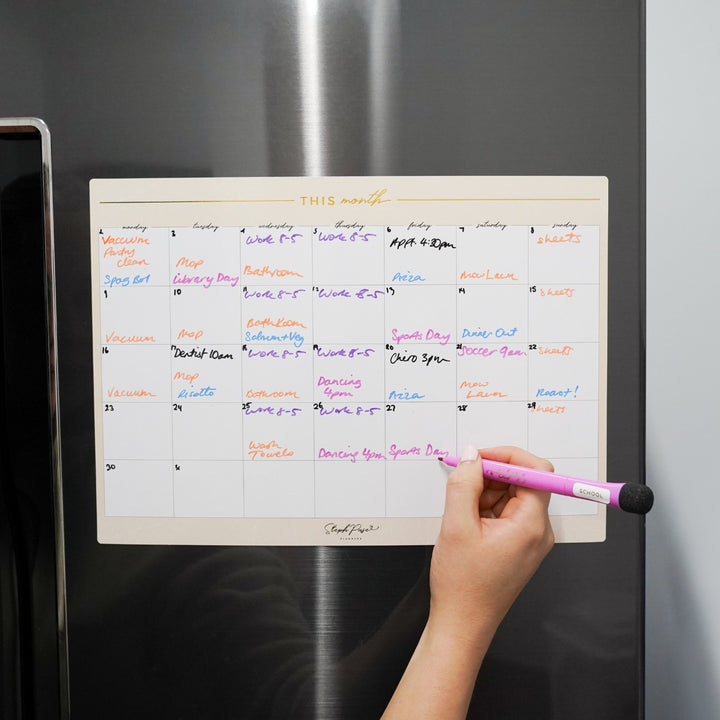 THIS month
monday tuesday wednesday thursday friday saturday sunday
2 3 4 5 6 7 8
Vacuum
Pantry
clean
Spag Bol
Mop
Library Day
Work 8-5
Bathroom
Work 8-5
Appt 4:30pm
Pizza
Mow Lawn
sheets
9 10 11 12 13 14 15
Vacuum
Mop
Work 8-5
Bathroom
Salmon + Veg
Work 8-5
Sports Day
Dinner Out
sheets
16 17 18 19 20 21 22
Vacuum
Dentist 10am
Mop
Risotto
Work 8-5
Bathroom
Work 8-5
Dancing
4pm
Chiro 3pm
Pizza
Soccer 9am
Mow
Lawn
sheets
Roast!
23 24 25 26 27 28 29
Work 8-5
Wash
Towels
Work 8-5
Dancing 4pm
Sports Day
sheets
30
Steph Pase
PLANNERS
SCHOOL